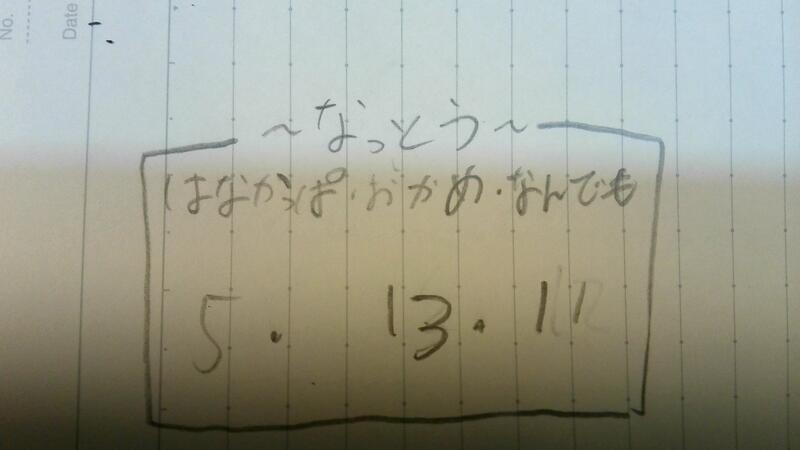 No.
Date
～なっとう～
はなかっぱ・おかめ・なんでも
5・13・11